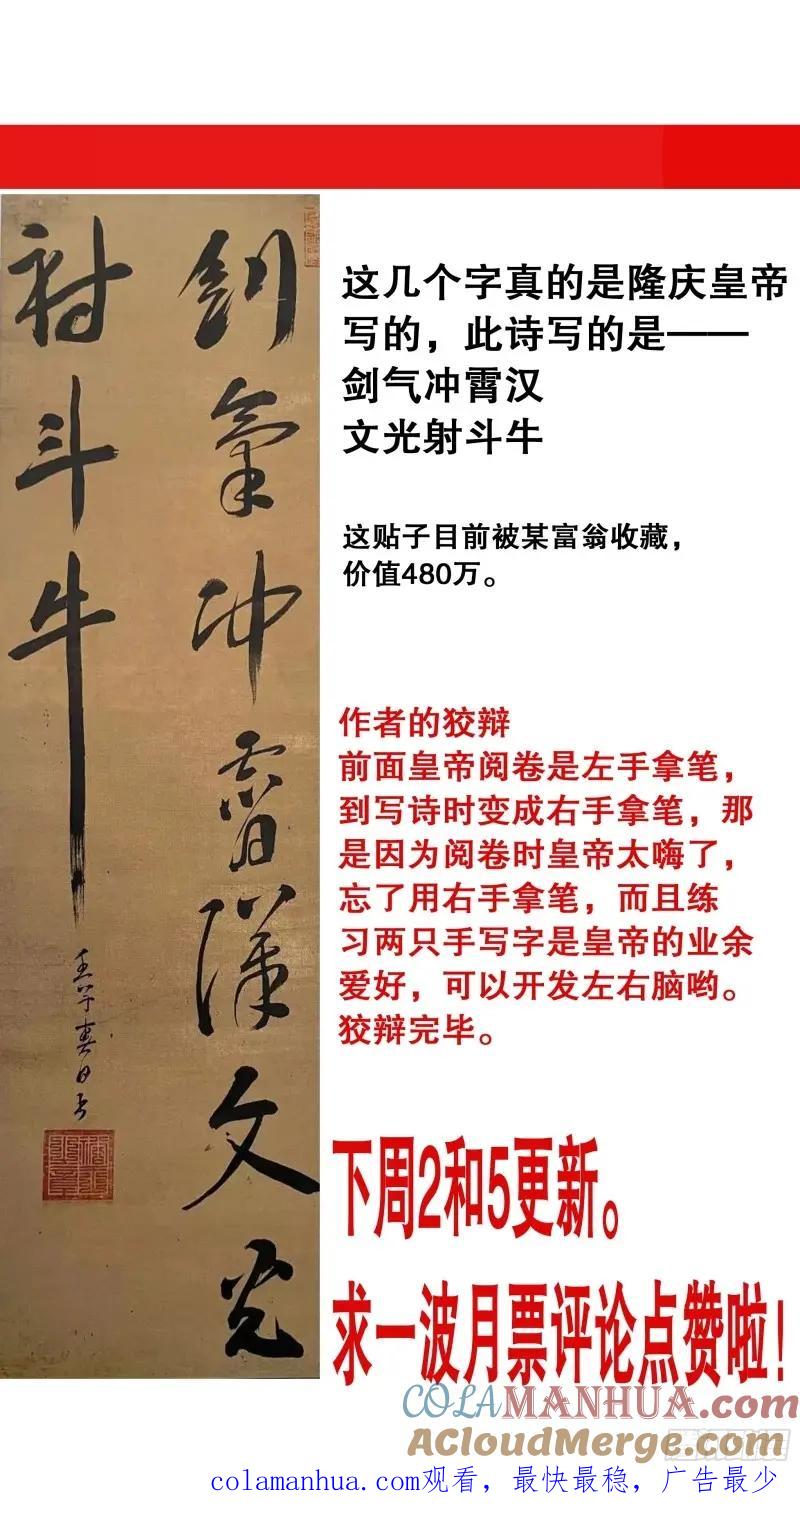 剑气冲霄汉文光
射斗牛
这几个字真的是隆庆皇帝
写的，此诗写的是——
剑气冲霄汉
文光射斗牛
这贴子目前被某富翁收藏，
价值480万。
作者的狡辩
前面皇帝阅卷是左手拿笔，
到写诗时变成右手拿笔，那
是因为阅卷时皇帝太嗨了，
忘了用右手拿笔，而且练
习两只手写字是皇帝的业余
爱好，可以开发左右脑哟。
狡辩完毕。
下周2和5更新。
求一波月票评论点赞啦！
COLAMANHUA.com
ACloudMerge.com
colamanhua.com观看，最快最稳，广告最少